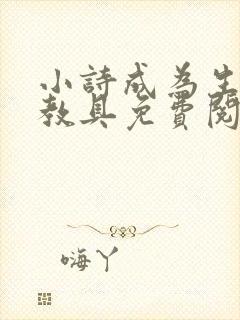 小詩成為生
教具免費閱
嗨丫